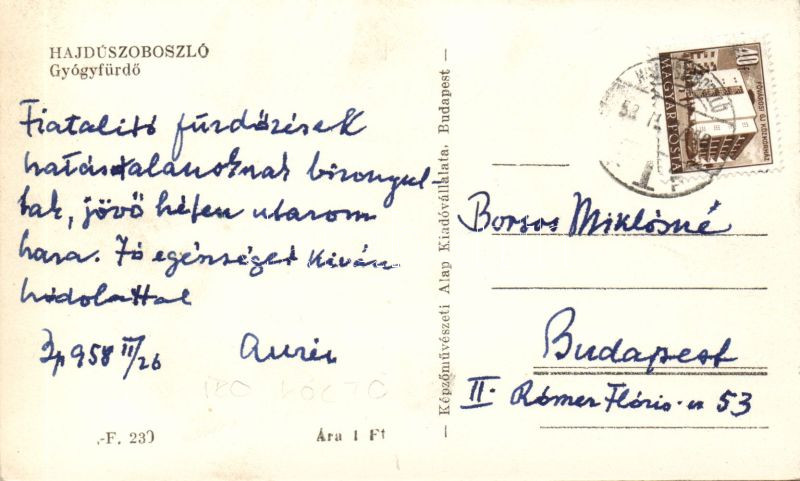 HAJDÚSZOBOSZLÓ
Gyógyfürdő
Fiatalitó fürdőzések
hatástalanoknak bizonyul-
tak, jövő héten utazom
haza. Jó egészséget kíván
hódolattal
958 II/26 Aurén
-F. 230
Ára 1 Ft
— Képzőművészeti Alap Kiadóvállalata, Budapest —
40f
MAGYAR POSTA
FŐVÁROSI ÚJ KÖZKÓRHÁZ
Borsos Miklósné
Budapest
II. Rómer Flóris u 53